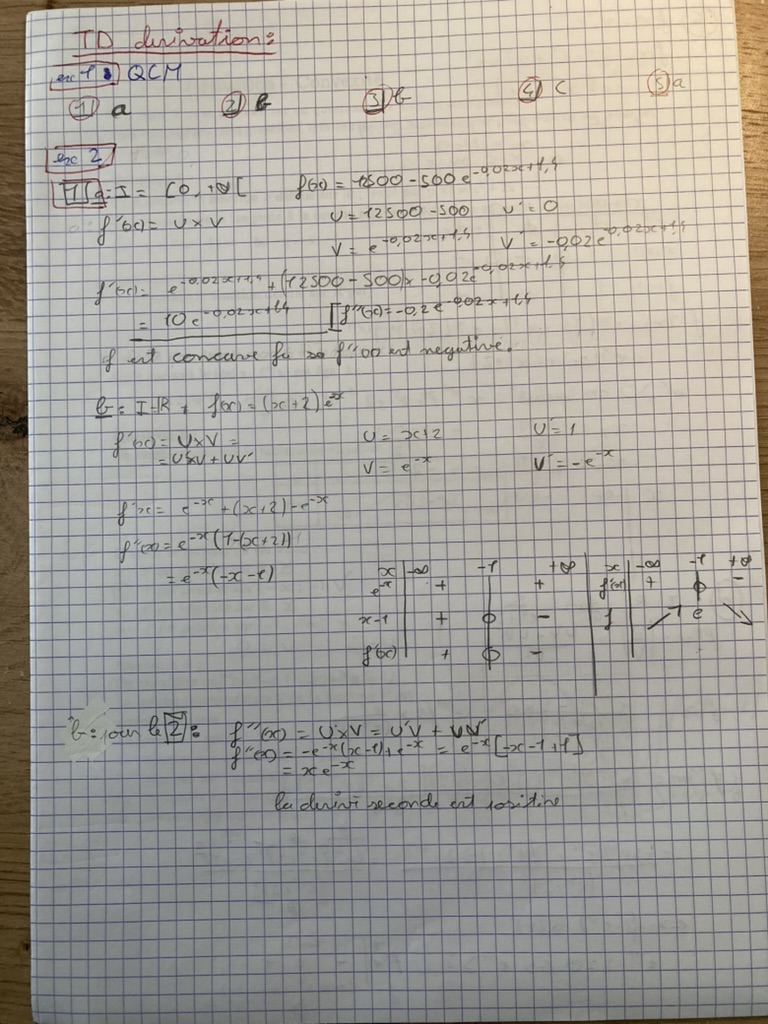 TD derivation:
exc 1: QCM
① a ② b ③ b ④ c ⑤ a
exc 2
1 a: I = [0, +∞[ f(x) = 12500 - 500 e^-0,02x+1,4
f'(x) = U x V U = 12500 - 500 U' = 0
V = e^-0,02x+1,4 V' = -0,02e^-0,02x+1,4
f'(x) = e^-0,02x+1,4 + (12500 - 500)x -0,02e^-0,02x+1,4
= 10 e^-0,02x+1,4 [f''(x) = -0,2 e^-0,02x+1,4
f est concave f''(x) est negative.
b: I = R f(x) = (x+2) e^-x
f'(x) = U x V = U = x+2 U' = 1
= U' x V + UV' V = e^-x V' = -e^-x
f'x = e^-x + (x+2) - e^-x
f'(x) = e^-x (1-(x+2))
= e^-x (-x -1)
x -∞ -1 +∞ x -∞ -1 +∞
e^-x + + f'(x) + 0 -
x-1 + 0 - f ↗ e ↘
f'(x) + 0 -
b: pour le 2: f''(x) = U x V = U'V + UV'
f''(x) = -e^-x (x-1) + e^-x = e^-x [-x-1+1]
= x e^-x
la derivé seconde est positive